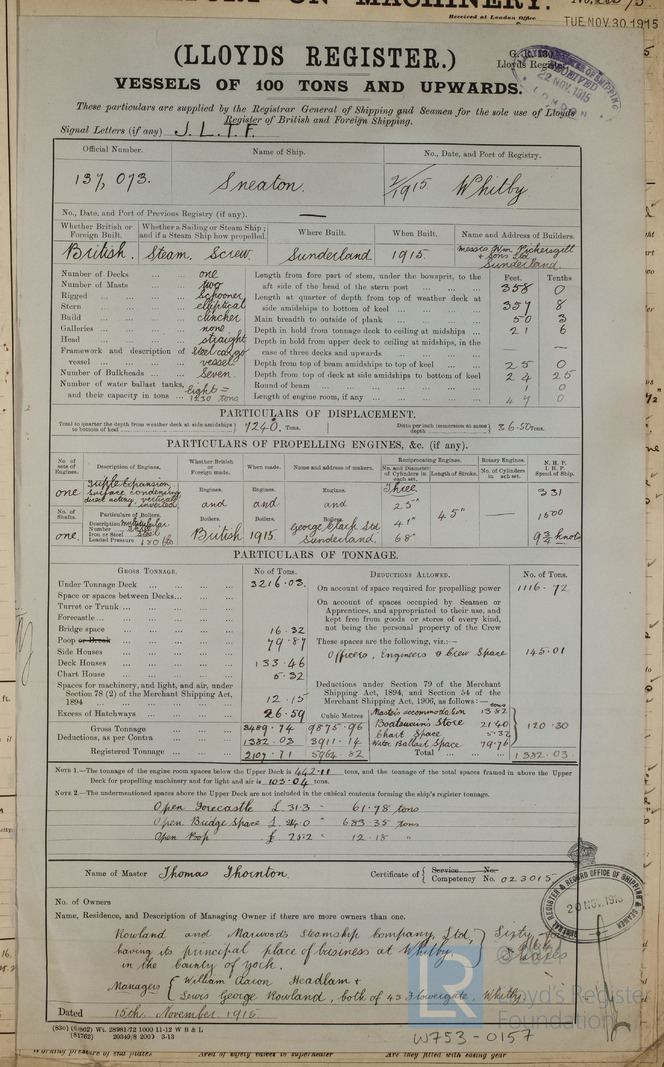 ORT ON MACHINERY.
Received at London Office
TUE NOV. 30. 1915
(LLOYDS REGISTER.)
Lloyds Register
RECEIVED
22 NOV. 1915
VESSELS OF 100 TONS AND UPWARDS.
These particulars are supplied by the Registrar General of Shipping and Seamen for the sole use of Lloyds
Register of British and Foreign Shipping.
Signal Letters (if any) J. L. T. F.
Official Number. Name of Ship. No., Date, and Port of Registry.
137,073. Sneaton. 7/1915 Whitby
No., Date, and Port of Previous Registry (if any). —
Whether British or Foreign Built. Whether a Sailing or Steam Ship; and if a Steam Ship how propelled. Where Built. When Built. Name and Address of Builders.
British. Steam. Screw. Sunderland 1915. Messrs Wm. Pickersgill & Sons Ltd Sunderland
Number of Decks one
Number of Masts two
Rigged Schooner
Stern elliptical
Build clincher
Galleries none
Head straight
Framework and description of vessel Steel cargo vessel.
Number of Bulkheads Seven.
Number of water ballast tanks, and their capacity in tons eight = 1230 tons
Feet. Tenths
Length from fore part of stem, under the bowsprit, to the aft side of the head of the stern post 358 0
Length at quarter of depth from top of weather deck at side amidships to bottom of keel 357 8
Main breadth to outside of plank 50 3
Depth in hold from tonnage deck to ceiling at midships 21 6
Depth in hold from upper deck to ceiling at midships, in the case of three decks and upwards —
Depth from top of beam amidships to top of keel 25 0
Depth from top of deck at side amidships to bottom of keel 24 25
Round of beam 1 0
Length of engine room, if any 47 0
PARTICULARS OF DISPLACEMENT.
Total to quarter the depth from weather deck at side amidships to bottom of keel 9240. Tons. Ditto per inch immersion at same depth 36.50 Tons.
PARTICULARS OF PROPELLING ENGINES, &c. (if any).
No. of sets of Engines. Description of Engines. Whether British or Foreign made. When made. Name and address of makers. Reciprocating Engines. Rotary Engines. N. H. P. I. H. P. Speed of Ship.
No. and Diameter of Cylinders in each set. Length of Stroke. No. of Cylinders in each set.
one Triple Expansion, surface condensing direct acting, vertical inverted
Engines. Engines. Engines. Three 331
and and and 25"
No. of Shafts. Particulars of Boilers. Boilers. Boilers. Boilers. 41" 45" — 1500
Description multitubular
Number
Iron or Steel Steel
Loaded Pressure 180 lbs
one. British 1915. George Clark Ltd Sunderland. 68" 9¾ knots
PARTICULARS OF TONNAGE.
GROSS TONNAGE. No. of Tons. DEDUCTIONS ALLOWED. No. of Tons.
Under Tonnage Deck 3216.03.
Space or spaces between Decks
Turret or Trunk
Forecastle
Bridge space 16.32
Poop or Break 79.87
Side Houses
Deck Houses 133.46
Chart House 5.32
Spaces for machinery, and light, and air, under Section 78 (2) of the Merchant Shipping Act, 1894 12.15
Excess of Hatchways 26.59 Cubic Metres
Gross Tonnage 3489.74 9875.96
Deductions, as per Contra 1382.03 3911.14
Registered Tonnage 2107.71 5964.82
On account of space required for propelling power 1116.72
On account of spaces occupied by Seamen or Apprentices, and appropriated to their use, and kept free from goods or stores of every kind, not being the personal property of the Crew
These spaces are the following, viz.:—
Officers, Engineers & Crew Space 145.01
Deductions under Section 79 of the Merchant Shipping Act, 1894, and Section 54 of the Merchant Shipping Act, 1906, as follows:—
Master's accommodation 13.82
Boatswain's Store 21.40
Chart Space 5.32
Water Ballast Space 79.76
120.30
Total 1382.03
NOTE 1.—The tonnage of the engine room spaces below the Upper Deck is 442.11 tons, and the tonnage of the total spaces framed in above the Upper
Deck for propelling machinery and for light and air is 103.04 tons.
NOTE 2.—The undermentioned spaces above the Upper Deck are not included in the cubical contents forming the ship's register tonnage.
Open Forecastle £ 31.3 - 61.78 tons
Open Bridge Space £ - 683.35 tons
Open Poop £ 25.2 - 12.18 "
Name of Master Thomas Thornton. Certificate of { Service No. Competency No. 023015
No. of Owners
Name, Residence, and Description of Managing Owner if there are more owners than one.
Rowland and Marwoods Steamship Company, Ltd,
having its principal place of business at Whitby
in the County of York.
Sixty
Shares
Managers { William Aaron Headlam &
Lewis George Rowland, both of 43 Flowergate, Whitby.
Dated 15th November 1915
GENERAL REGISTER & RECORD OFFICE OF SHIPPING & SEAMEN
20 NOV. 1915
LR
Lloyd's Register
Foundation
(830) (8802) Wt. 28981/72 1000 11-12 W B & L
(81762) 20349/8 2000 3-13
W753-0157
Working pressure of end plates Area of safety valves to superheater Are they fitted with easing gear